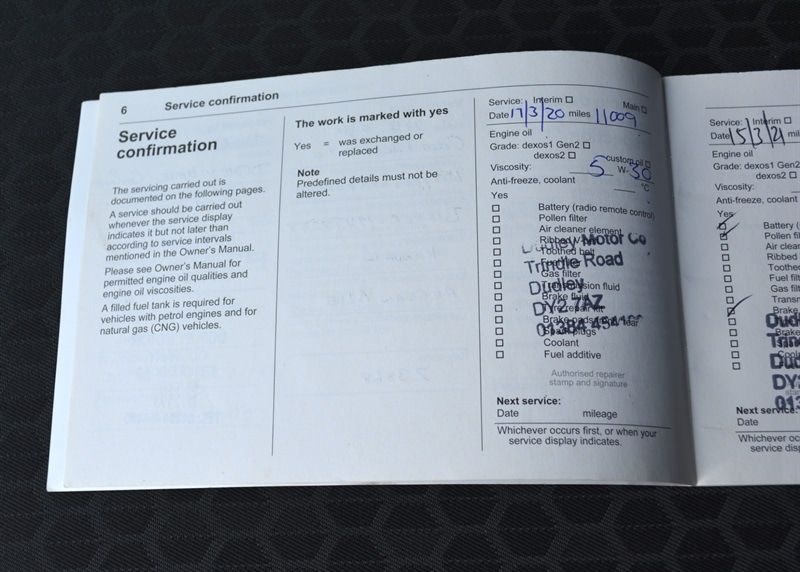 6 Service confirmation
Service
confirmation
The servicing carried out is
documented on the following pages.
A service should be carried out
whenever the service display
indicates it but not later than
according to service intervals
mentioned in the Owner's Manual.
Please see Owner's Manual for
permitted engine oil qualities and
engine oil viscosities.
A filled fuel tank is required for
vehicles with petrol engines and for
natural gas (CNG) vehicles.
The work is marked with yes
Yes = was exchanged or
replaced
Note
Predefined details must not be
altered.
Service: Interim Main
Date 17/3/20 miles 11009
Engine oil
Grade: dexos1 Gen2
dexos2 custom oil
Viscosity: 5 W-30
Anti-freeze, coolant °C
Yes
Battery (radio remote control)
Pollen filter
Air cleaner element
Ribbed V
Dudley Motor Co
Toothed belt
Trindle Road
Gas filter
Transmission fluid
Dudley
Brake fluid
DY2 7AZ
Brake pads
01384
Spark plugs
Coolant
Fuel additive
Authorised repairer
stamp and signature
Next service:
Date mileage
Whichever occurs first, or when your
service display indicates.
Service: Interim
Date 15/3/21 mil
Engine oil
Grade: dexos1 Gen2
dexos2
Viscosity:
Anti-freeze, coolant
Yes
Battery (
Pollen fil
Air clea
Ribbed
Toothe
Fuel filt
Gas filt
Transm
Brake
Dud
Trin
Dud
DY
013
Next service:
Date
Whichever oc
service disp